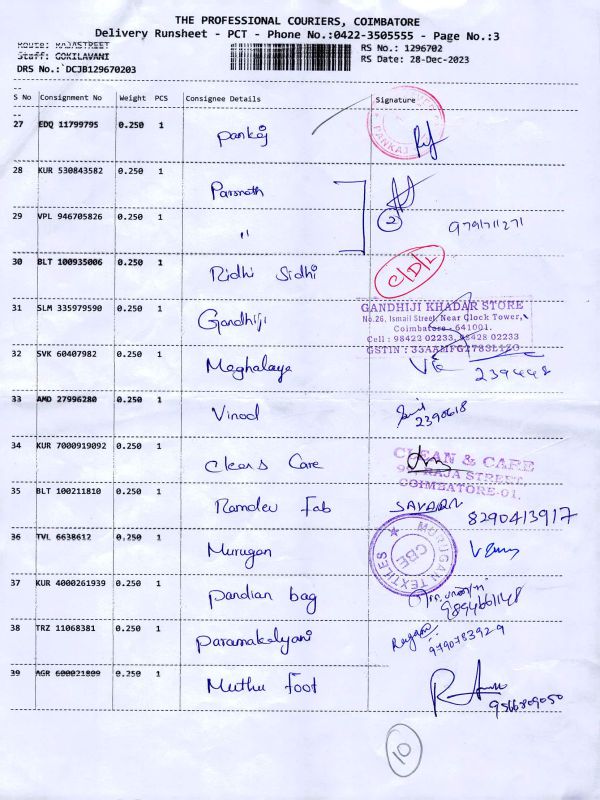 THE PROFESSIONAL COURIERS, COIMBATORE
Delivery Runsheet - PCT - Phone No.:0422-3505555 - Page No.:3
Route: RAJASTREET RS No.: 1296702
Staff: GOKILAVANI RS Date: 28-Dec-2023
DRS No.: DCJB129670203
S No Consignment No Weight PCS Consignee Details Signature
27 EDQ 11799795 0.250 1 Pankaj
28 KUR 530843582 0.250 1 Parsnath
29 VPL 946705826 0.250 1 " 2 9791711271
30 BLT 100935006 0.250 1 Ridhi Sidhi C/D/L
31 SLM 335979590 0.250 1 Gandhiji
GANDHIJI KHADAR STORE
No.26, Ismail Street, Near Clock Tower,
Coimbatore - 641001.
Cell : 98422 02233, 98428 02233
GSTIN : 33AAMFG2783L1ZG
32 SVK 60407982 0.250 1 Meghalaya 239448
33 AMD 27996280 0.250 1 Vinod 2390618
34 KUR 7000919092 0.250 1 Clean & Care
CLEAN & CARE
RAJA STREET
COIMBATORE-01.
35 BLT 100211810 0.250 1 Ramdev Fab 8290413917
36 TVL 6638612 0.250 1 Murugan
MURUGAN TEXTILES
CBE
37 KUR 4000261939 0.250 1 Pandian bag 9894661148
38 TRZ 11068381 0.250 1 Paramakalyani 9790783929
39 AGR 600021809 0.250 1 Muthu Foot 9566809050
10